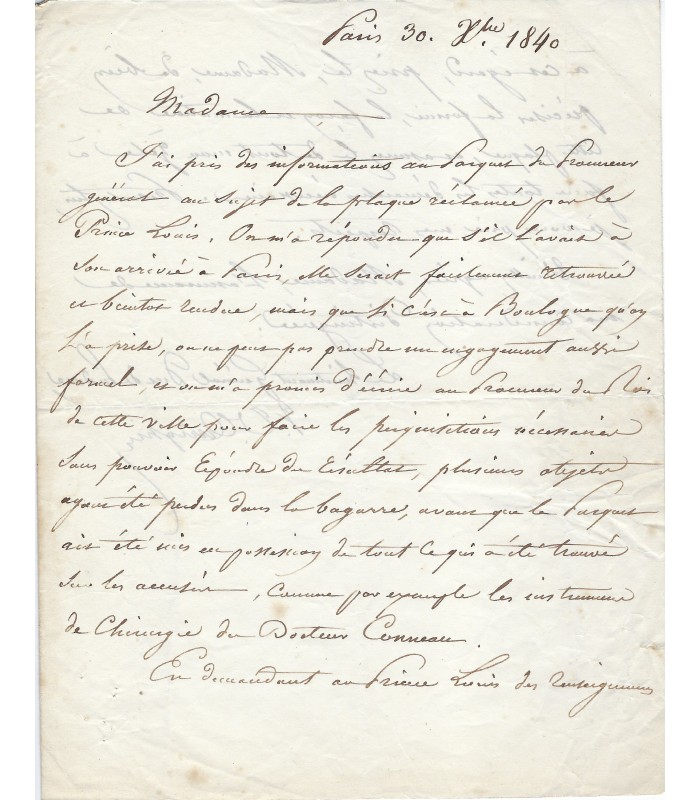 Paris 30. Xbre. 1840
Madame
J'ai pris des informations au Parquet du Procureur
général au sujet de la plaque réclamée par le
Prince Louis. On m'a répondu que s'il l'avait à
son arrivée à Paris, elle serait facilement retrouvée
et bientot rendue, mais que si c'est à Boulogne qu'on
l'a prise, on ne peut pas prendre un engagement aussi
formel, et on m'a promis d'écrire au Procureur du Roi
de cette ville pour faire les perquisitions nécessaires
sans pouvoir répondre du résultat, plusieurs objets
ayant été perdus dans la bagarre, avant que le Parquet
ait été mis en possession de tout ce qui a été trouvé
sur les accusés, comme par exemple les instrumens
de Chirurgie du Docteur Conneau.
En demandant au Prince Louis des renseignemens